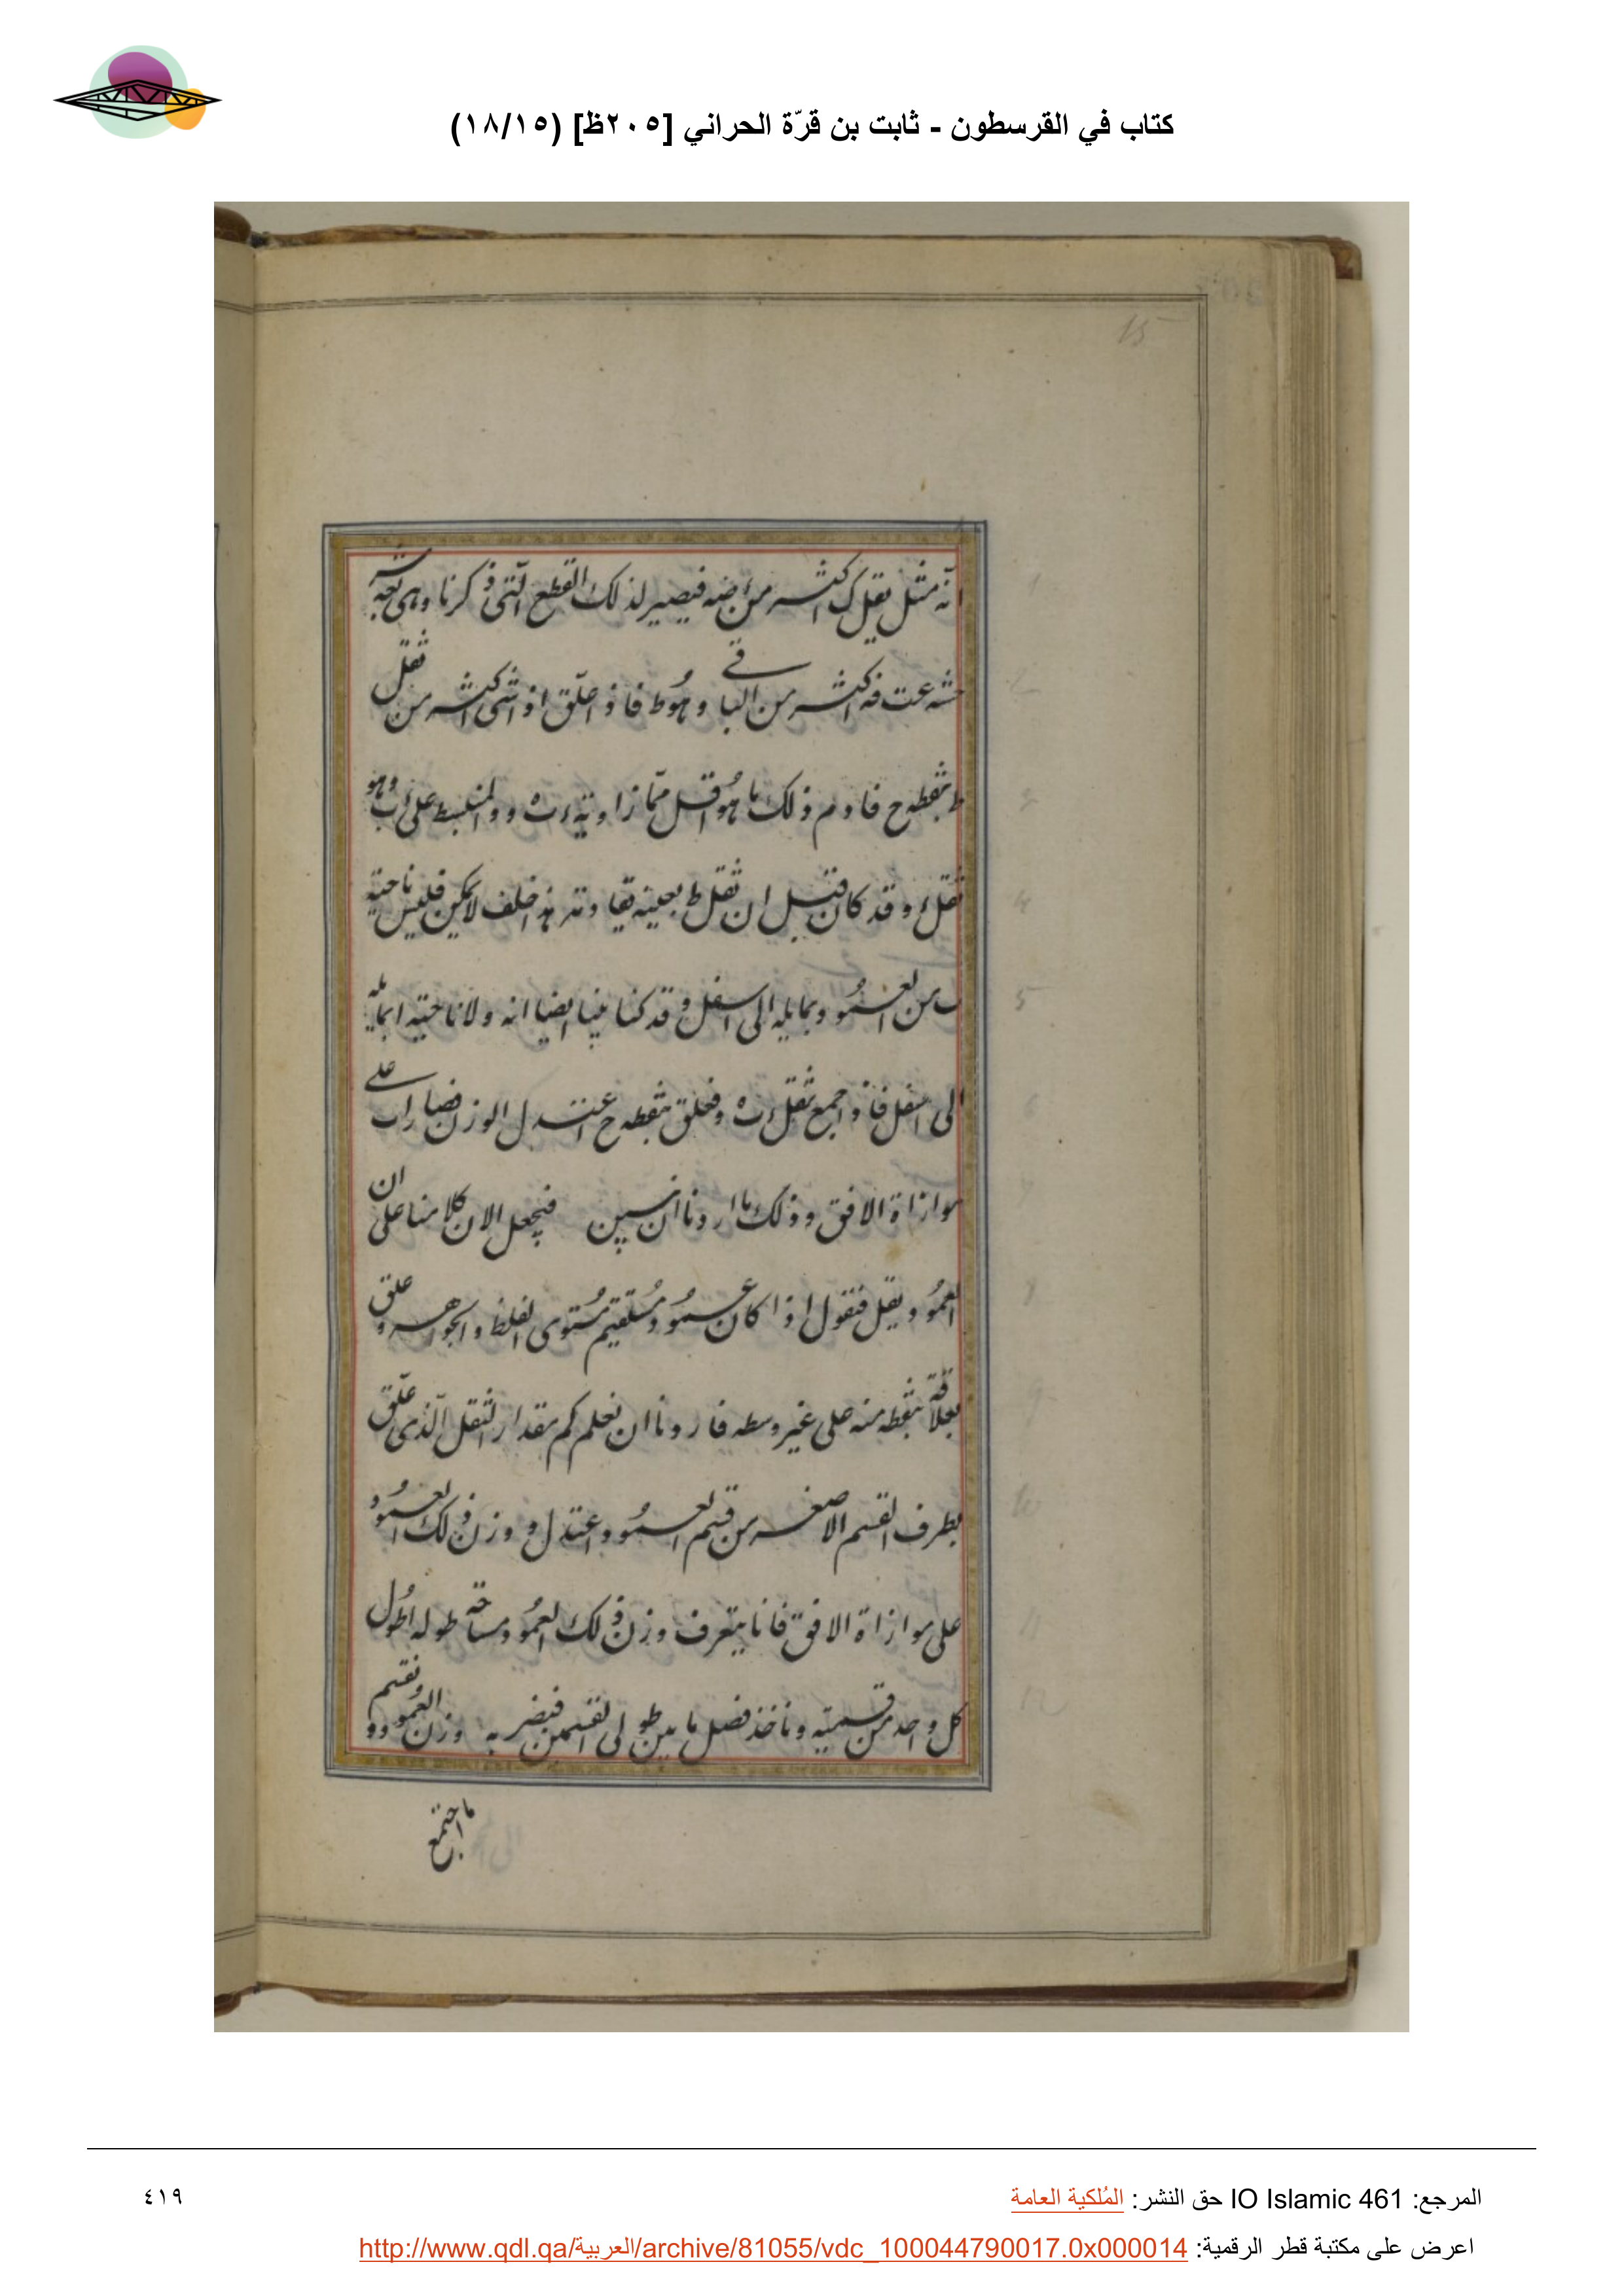 كتاب في القرسطون - ثابت بن قرّة الحراني [٢٠٥ظ] (١٨/١٥)
15
انه مثل ثقل ك اكثر من فيصير لذلك القطع الّتى ذكرنا وهى
اكثر من الباقے و هُوط فاذ اعلّق اذ اشى اكثر من ثقل
ط بنقطه ح فا وم ذلك ما هُو اقل ممّا زاويه و على اب وهو
ثقل وقد كان قبل ان ثقل ط بعينه هذا خلف لا يمكن فليس ناحيته
ب من العمُود بمايله الى اسفل وقد كنا بينا ايضا انه ولا ناحيته ا بمايله
الى اسفل فاذ اجمع ثقل ره فعلق بنقطه ح اعتدل الوزن فصار اب علے
موازاة الافق وذلك ما اردنا ان نبين فنجعل الان كلامنا على ان
العمُود ثقيل فنقول اذا كان عمُود مُستقيم مُستوى الغلظ والجوهر وعلق
بعلاقة بنقطه منه على غير وسطه فاردنا ان نعلم كم مقدار الثقل الّذى علّق
بطرف القسم الاصغر من قسم العمُود واعتدل و وزن ذلك العمُود
على موازاة الافق فانا نتعرف وزن ذلك العمُود ومساحة طوله وطُول
كل واحد من قسميّه وناخذ فضل ما بين طولى القسمين فنضربه وزن العمود ونقسم
ما اجتمع
المرجع: IO Islamic 461 حق النشر: المُلكية العامة
٤١٩
اعرض على مكتبة قطر الرقمية: http://www.qdl.qa/العربية/archive/81055/vdc_100044790017.0x000014